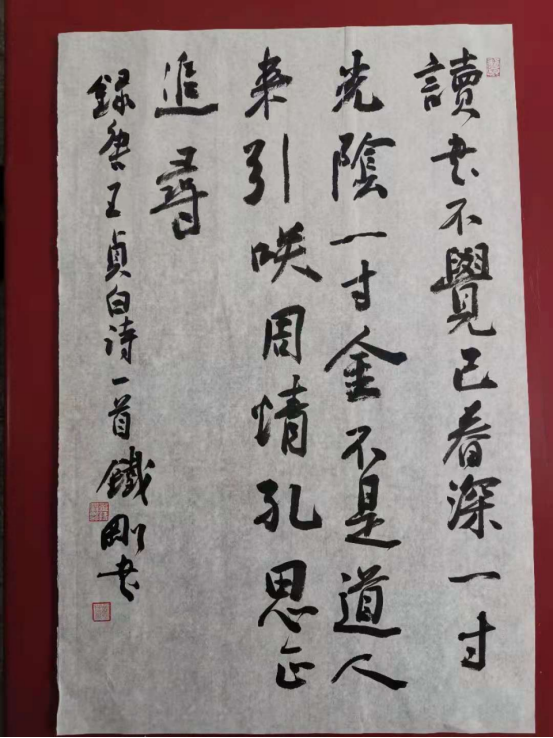 讀书不覺已春深一寸
光陰一寸金不是道人
来引咲周情孔思正
追尋
録唐王貞白诗一首鐵剛书